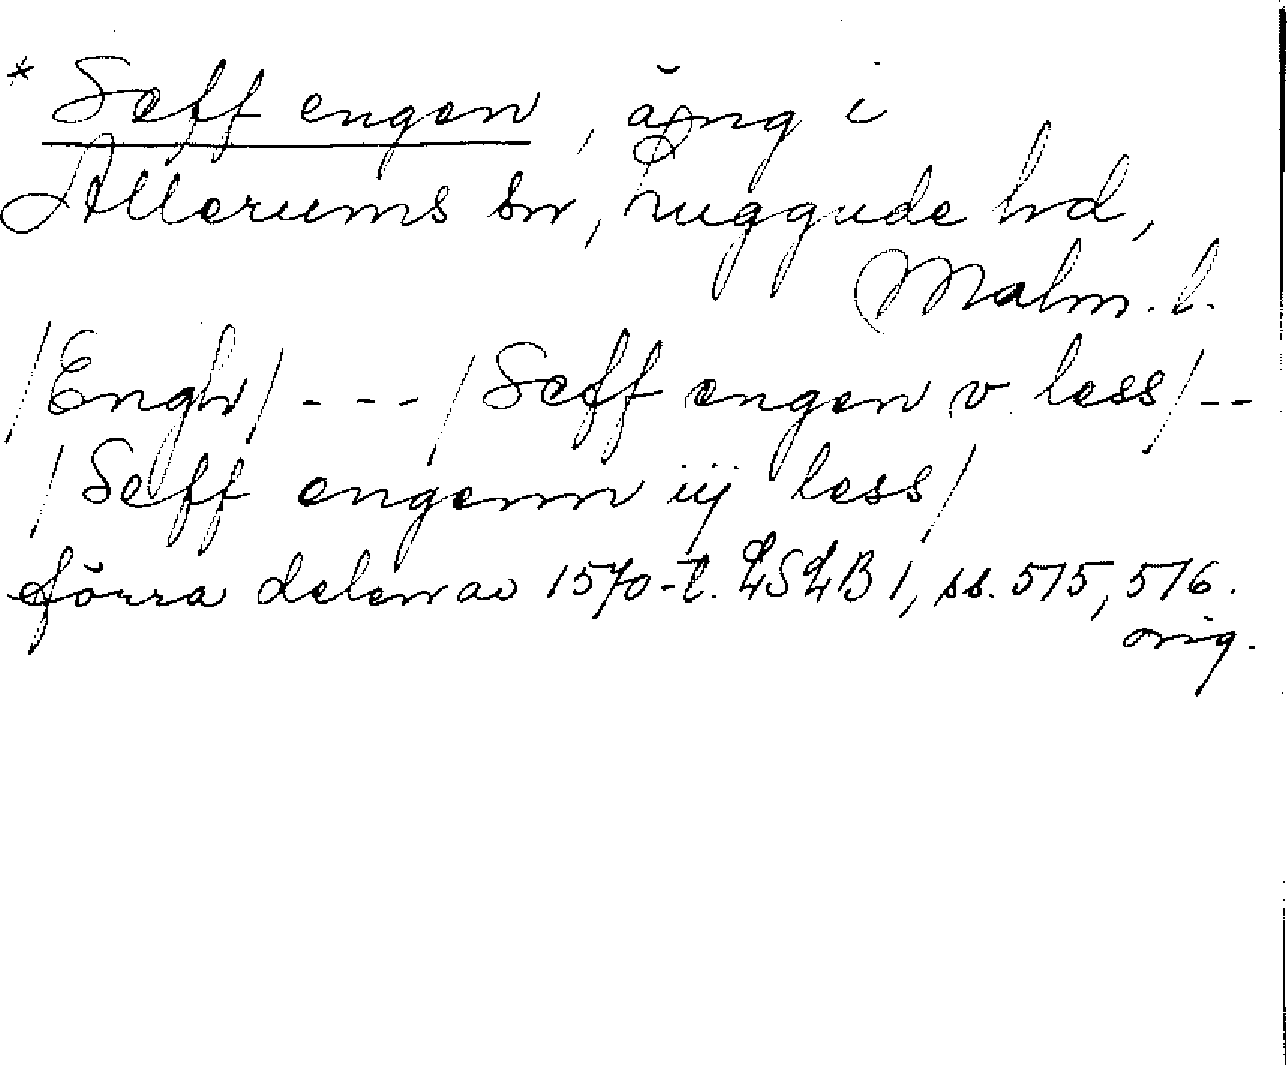 * Seff engen, äng i
Allerums sn, Luggude hd,
Malm. l.
/Engh/ - - - / Seff engen v less/ --
/Seff engenn iij less/
förra delen av 1570-t. LSLB 1, ss. 575, 576.
orig.